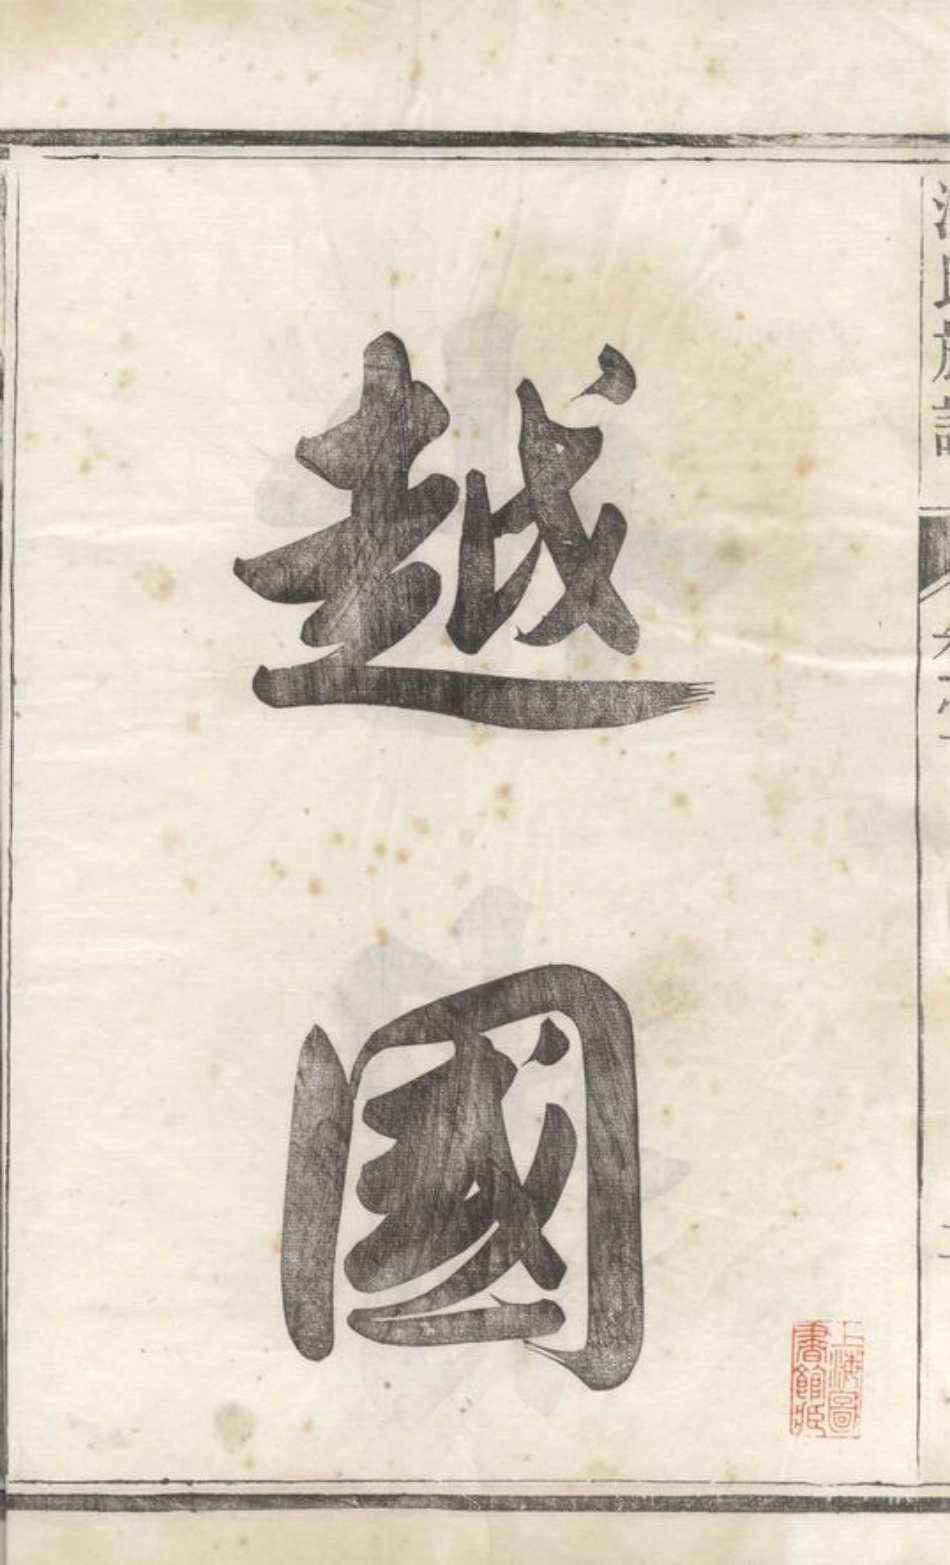 越
國
上海圖
書館藏